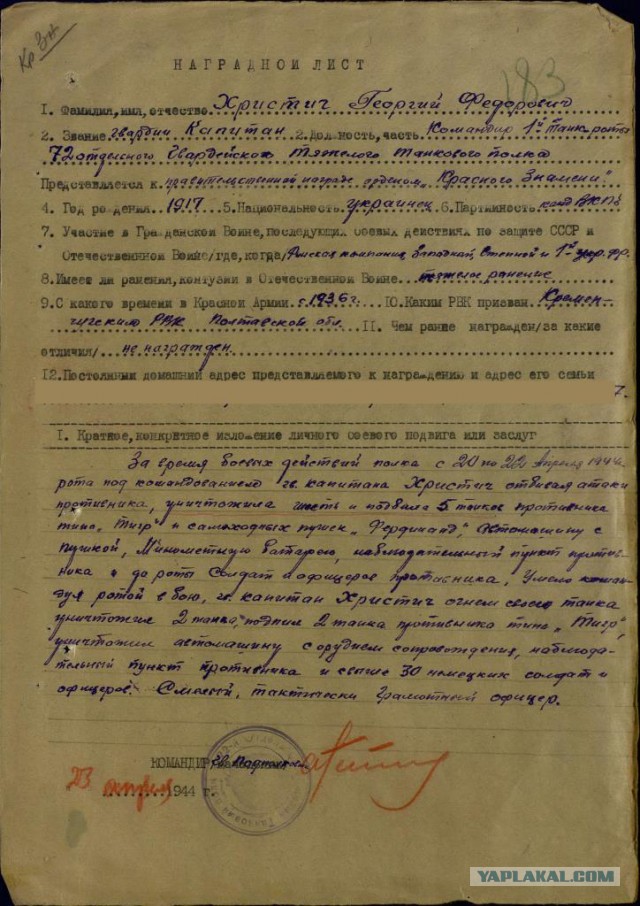 Кр Зн
183
НАГРАДНОЙ ЛИСТ
1. Фамилия, имя, отчество Христич Георгий Федорович
2. Звание гвардии Капитан 2. Должность, часть Командир 1й танк. рота
72 отдельного Гвардейского Тяжелого танкового полка
Представляется к правительственной награде орденом "Красного Знамени"
4. Год рождения 1917 5. Национальность украинец 6. Партийность канд ВКПб
7. Участие в Гражданской Войне, последующих боевых действиях по защите СССР и
Отечественной Войне/где, когда/ Финская компания, Западной, Степной и 1й укр. фр.
8. Имеет ли ранения, контузии в Отечественной Войне тяжелое ранение
9. С какого времени в Красной Армии с 1936 г. 10. Каким РВК призван Кремен-
чугским РВК Полтавской обл. 11. Чем ранее награжден/за какие
отличия/ не награжден.
12. Постоянный домашний адрес представляемого к награждению и адрес его семьи
7.
1. Краткое, конкретное изложение личного боевого подвига или заслуг
За время боевых действий полка с 20 по 22 апреля 1944 г.
рота под командованием гв. капитана Христич отбивая атаки
противника, уничтожила шесть и подбила 5 танков противника
типа "Тигр" и самоходных пушек "Фердинанд", Автомашину с
пушкой, Минометную батарею, наблюдательный пункт против-
ника и до роты солдат и офицеров противника. Умело коман-
дуя ротой в бою, гв. капитан Христич огнем своего танка
уничтожил 2 танка, подбил 2 танка противника типа "Тигр",
уничтожил автомашину с орудием сопровождения, наблюда-
тельный пункт противника и свыше 30 немецких солдат и
офицеров. Смелый, тактически грамотный офицер.
КОМАНДИР
23 апреля 1944 г.
YAPLAKAL.COM